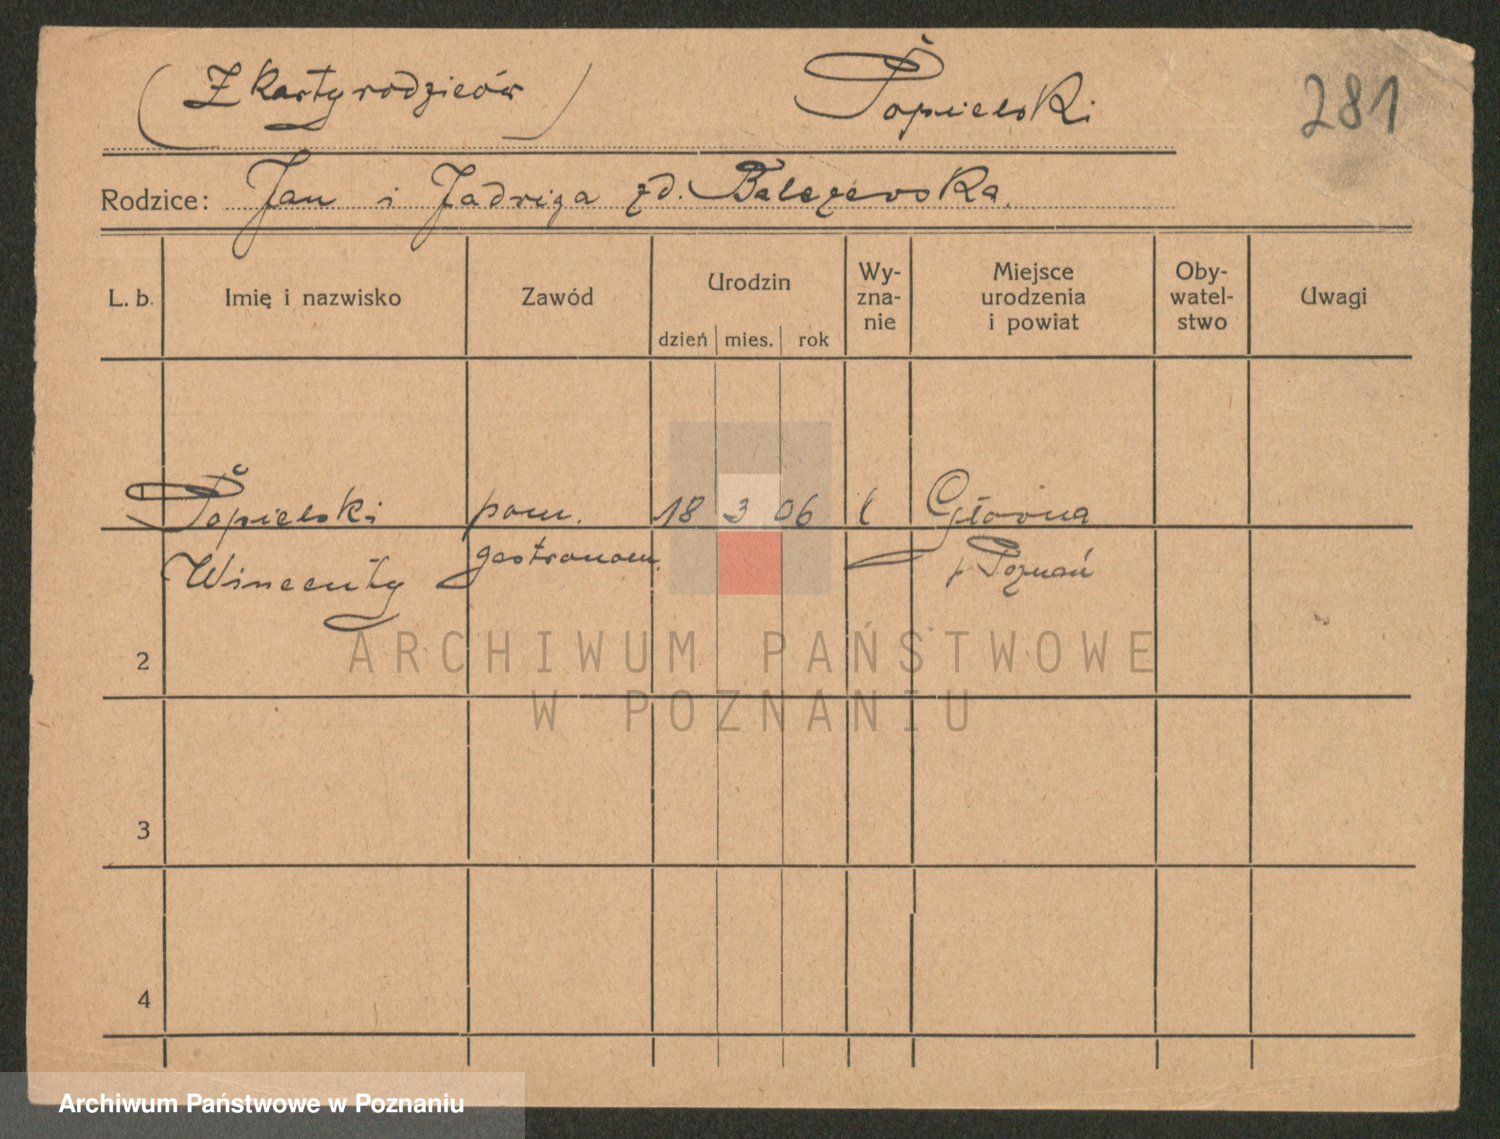 (Z karty rodziców) Popielski 281
Rodzice: Jan i Jadwiga zd.
L. b. Imię i nazwisko Zawód Urodzin dzień mies. rok Wy-zna-nie Miejsce urodzenia i powiat Oby-watel-stwo Uwagi
1 Popielski pom. 18 3 06 Główna
Wincenty gastronom. p. Poznań
2
ARCHIWUM PAŃSTWOWE
W POZNANIU
3
4
Archiwum Państwowe w Poznaniu